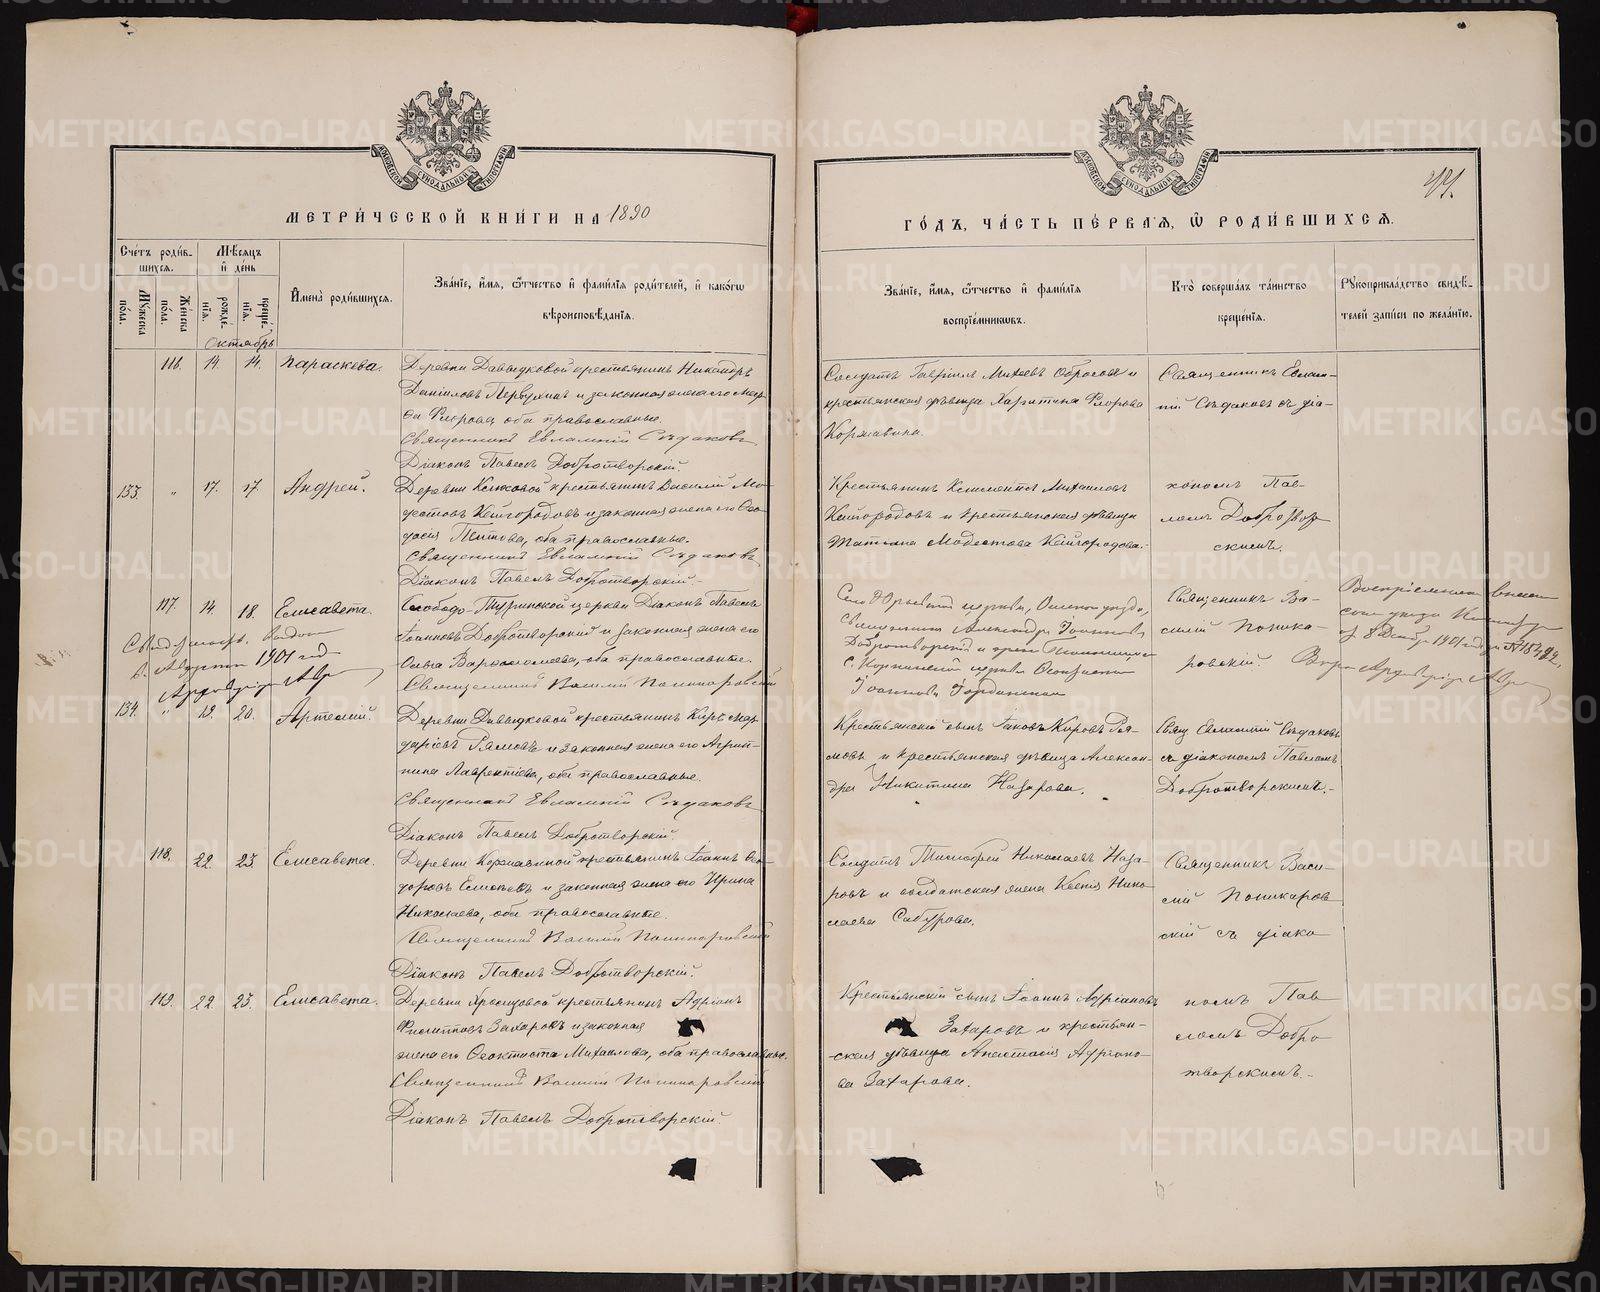 МЕТРИ́ЧЕСКОЙ КНИ́ГИ НА 1890
Сче́тъ роди́в-
шихся.
Мѣ́сяцъ
и҆ де́нь
Му́жеска
по́ла.
Же́нска
по́ла.
рожде́-
нїя.
креще́-
нїя.
И҆мена̀ роди́вшихся.
Зва́нїе, и҆́мя, ѻ҆́тчество и҆ фами́лїя роди́телей, и҆ како́гѡ
вѣроисповѣ́данїя.
Октябрь
116. 14. 14. Параскева.
Деревни Давыдковой крестьянинъ Никандръ
Даниловъ Первухинъ и законная жена его Мар-
Флорова, оба православные.
Священникъ Евлампій Сѣдаковъ
Діаконъ Павелъ Добротворскій.
133. " 17. 17. Андрей.
Деревни крестьянинъ Василій Мо-
дестовъ Кайгородовъ и законная жена его Ѳео-
досія Титова, оба православные.
Священникъ Евлампій Сѣдаковъ
Діаконъ Павелъ Добротворскій.
117. 14. 18. Елисавета.
Слободо-Туринской церкви Діаконъ Павелъ
Іоанновъ Добротворскій и законная жена его
Ольга Варѳоломеева, оба православные.
Священникъ Василій Поникаровскій
въ Августа 1901 года
134. " 19. 20. Артемій.
Деревни Давыдковой крестьянинъ Киръ Мар-
даріевъ Рямовъ и законная жена его Агрип-
пина Лаврентіева, оба православные.
Священникъ Евлампій Сѣдаковъ
Діаконъ Павелъ Добротворскій.
118. 22. 23. Елисавета.
Деревни Коржавиной крестьянинъ Іоаннъ Ѳео-
доровъ и законная жена его Ирина
Николаева, оба православные.
Священникъ Василій Поникаровскій
Діаконъ Павелъ Добротворскій.
119. 22. 23. Елисавета.
Деревни крестьянинъ Адріанъ
Филиповъ Захаровъ и законная
жена его Ѳеоктиста Михаилова, оба православные.
Священникъ Василій Поникаровскій
Діаконъ Павелъ Добротворскій.
ГО́ДЪ, ЧА́СТЬ ПЕ́РВАЯ, Ѡ҆ РОДИ́ВШИХСЯ.
Зва́нїе, и҆́мя, ѻ҆́тчество и҆ фами́лїя
воспрїе́мниковъ.
Кто̀ соверша́лъ та́инство
креще́нїя.
Рꙋкоприкла́дство свидѣ́-
телей за́писи по жела́нїю.
Солдатъ Гавріилъ Михеевъ и
крестьянская дѣвица Харитина Флорова
Коржавина.
Священникъ Евлам-
пій Сѣдаковъ съ діа-
Крестьянинъ Климентъ Михаиловъ
Кайгородовъ и крестьянская дѣвица
Татіана Модестова Кайгородова.
кономъ Пав-
ломъ Добротвор-
скимъ.
церкви,
Священникъ Александръ Іоанновъ
Добротворскій и
церкви
Іоаннова
Священникъ Ва-
силій Поника-
ровскій.
8 1901 года
Крестьянскій сынъ Іаковъ Кировъ Ря-
мовъ и крестьянская дѣвица Алексан-
дра Никитина Назарова.
Свящ. Евлампій Сѣдаковъ
съ діакономъ Павломъ
Добротворскимъ.
Солдатъ Тимофей Николаевъ Наза-
ровъ и солдатская жена Ксенія Нико-
лаева Сабурова.
Священникъ Васи-
лій Поникаров-
скій съ діако-
Крестьянскій сынъ Іоаннъ Адріановъ
Захаровъ и крестьян-
ская дѣвица Анастасія Адріано-
ва Захарова.
номъ Пав-
ломъ Добро-
творскимъ.
METRIKI.GASO-URAL.RU